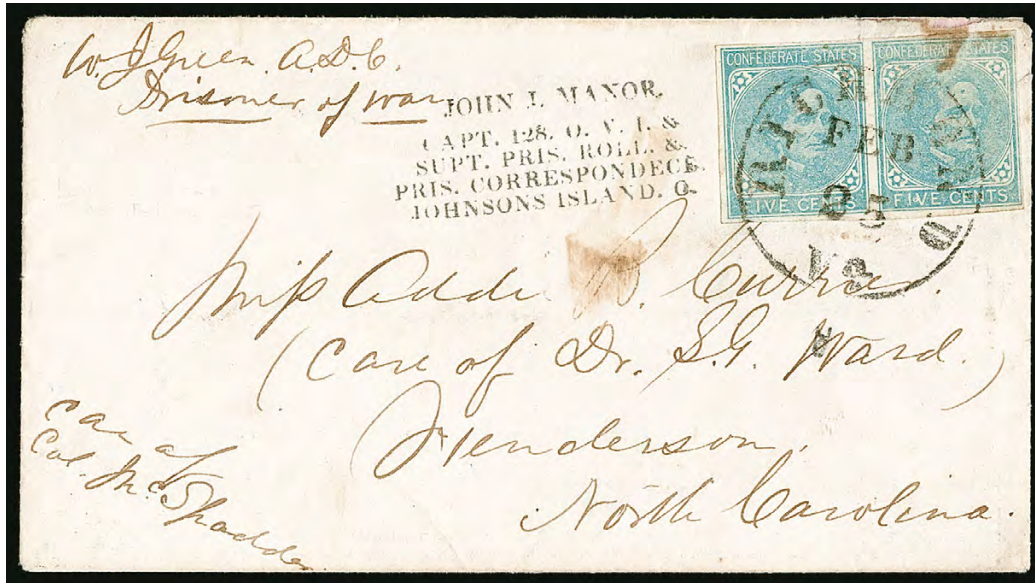 W. J. Green. A.D.C.
Prisoner of war
JOHN J. MANOR,
CAPT. 128. O. V. I. &
SUPT. PRIS. ROLL. &
PRIS. CORRESPONDECE.
JOHNSONS ISLAND. O.
CONFEDERATE STATES
CONFEDERATE STATES
FIVE CENTS
FIVE CENTS
RICHMOND
FEB
25
Va
Miss Addie B. Currie.
(Care of Dr. S. G. Ward.)
Henderson,
North Carolina.
Care of
Col. McShadden